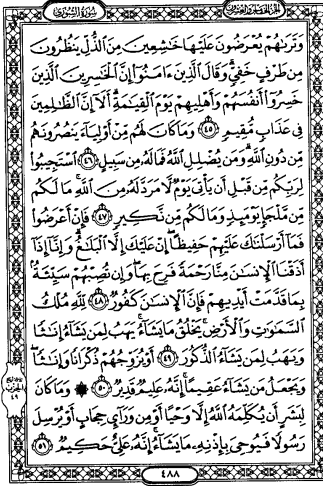 الجزء الخامس والعشرون
سورة الشورى
وَتَرَىٰهُمْ يُعْرَضُونَ عَلَيْهَا خَٰشِعِينَ مِنَ ٱلذُّلِّ يَنظُرُونَ
مِن طَرْفٍ خَفِىٍّ وَقَالَ ٱلَّذِينَ ءَامَنُوٓا۟ إِنَّ ٱلْخَٰسِرِينَ ٱلَّذِينَ
خَسِرُوٓا۟ أَنفُسَهُمْ وَأَهْلِيهِمْ يَوْمَ ٱلْقِيَٰمَةِ أَلَآ إِنَّ ٱلظَّٰلِمِينَ
فِى عَذَابٍ مُّقِيمٍ ٤٥ وَمَا كَانَ لَهُم مِّنْ أَوْلِيَآءَ يَنصُرُونَهُم
مِّن دُونِ ٱللَّهِ وَمَن يُضْلِلِ ٱللَّهُ فَمَا لَهُۥ مِن سَبِيلٍ ٤٦ ٱسْتَجِيبُوا۟
لِرَبِّكُم مِّن قَبْلِ أَن يَأْتِىَ يَوْمٌ لَّا مَرَدَّ لَهُۥ مِنَ ٱللَّهِ مَا لَكُم
مِّن مَّلْجَإٍ يَوْمَئِذٍ وَمَا لَكُم مِّن نَّكِيرٍ ٤٧ فَإِنْ أَعْرَضُوا۟
فَمَآ أَرْسَلْنَٰكَ عَلَيْهِمْ حَفِيظًا إِنْ عَلَيْكَ إِلَّا ٱلْبَلَٰغُ وَإِنَّآ إِذَآ
أَذَقْنَا ٱلْإِنسَٰنَ مِنَّا رَحْمَةً فَرِحَ بِهَا وَإِن تُصِبْهُمْ سَيِّئَةٌۢ
بِمَا قَدَّمَتْ أَيْدِيهِمْ فَإِنَّ ٱلْإِنسَٰنَ كَفُورٌ ٤٨ لِّلَّهِ مُلْكُ
ٱلسَّمَٰوَٰتِ وَٱلْأَرْضِ يَخْلُقُ مَا يَشَآءُ يَهَبُ لِمَن يَشَآءُ إِنَٰثًا
وَيَهَبُ لِمَن يَشَآءُ ٱلذُّكُورَ ٤٩ أَوْ يُزَوِّجُهُمْ ذُكْرَانًا وَإِنَٰثًا
وَيَجْعَلُ مَن يَشَآءُ عَقِيمًا إِنَّهُۥ عَلِيمٌ قَدِيرٌ ٥٠ ۞ وَمَا كَانَ
لِبَشَرٍ أَن يُكَلِّمَهُ ٱللَّهُ إِلَّا وَحْيًا أَوْ مِن وَرَآئِ حِجَابٍ أَوْ يُرْسِلَ
رَسُولًا فَيُوحِىَ بِإِذْنِهِۦ مَا يَشَآءُ إِنَّهُۥ عَلِىٌّ حَكِيمٌ ٥١
٤٨٨